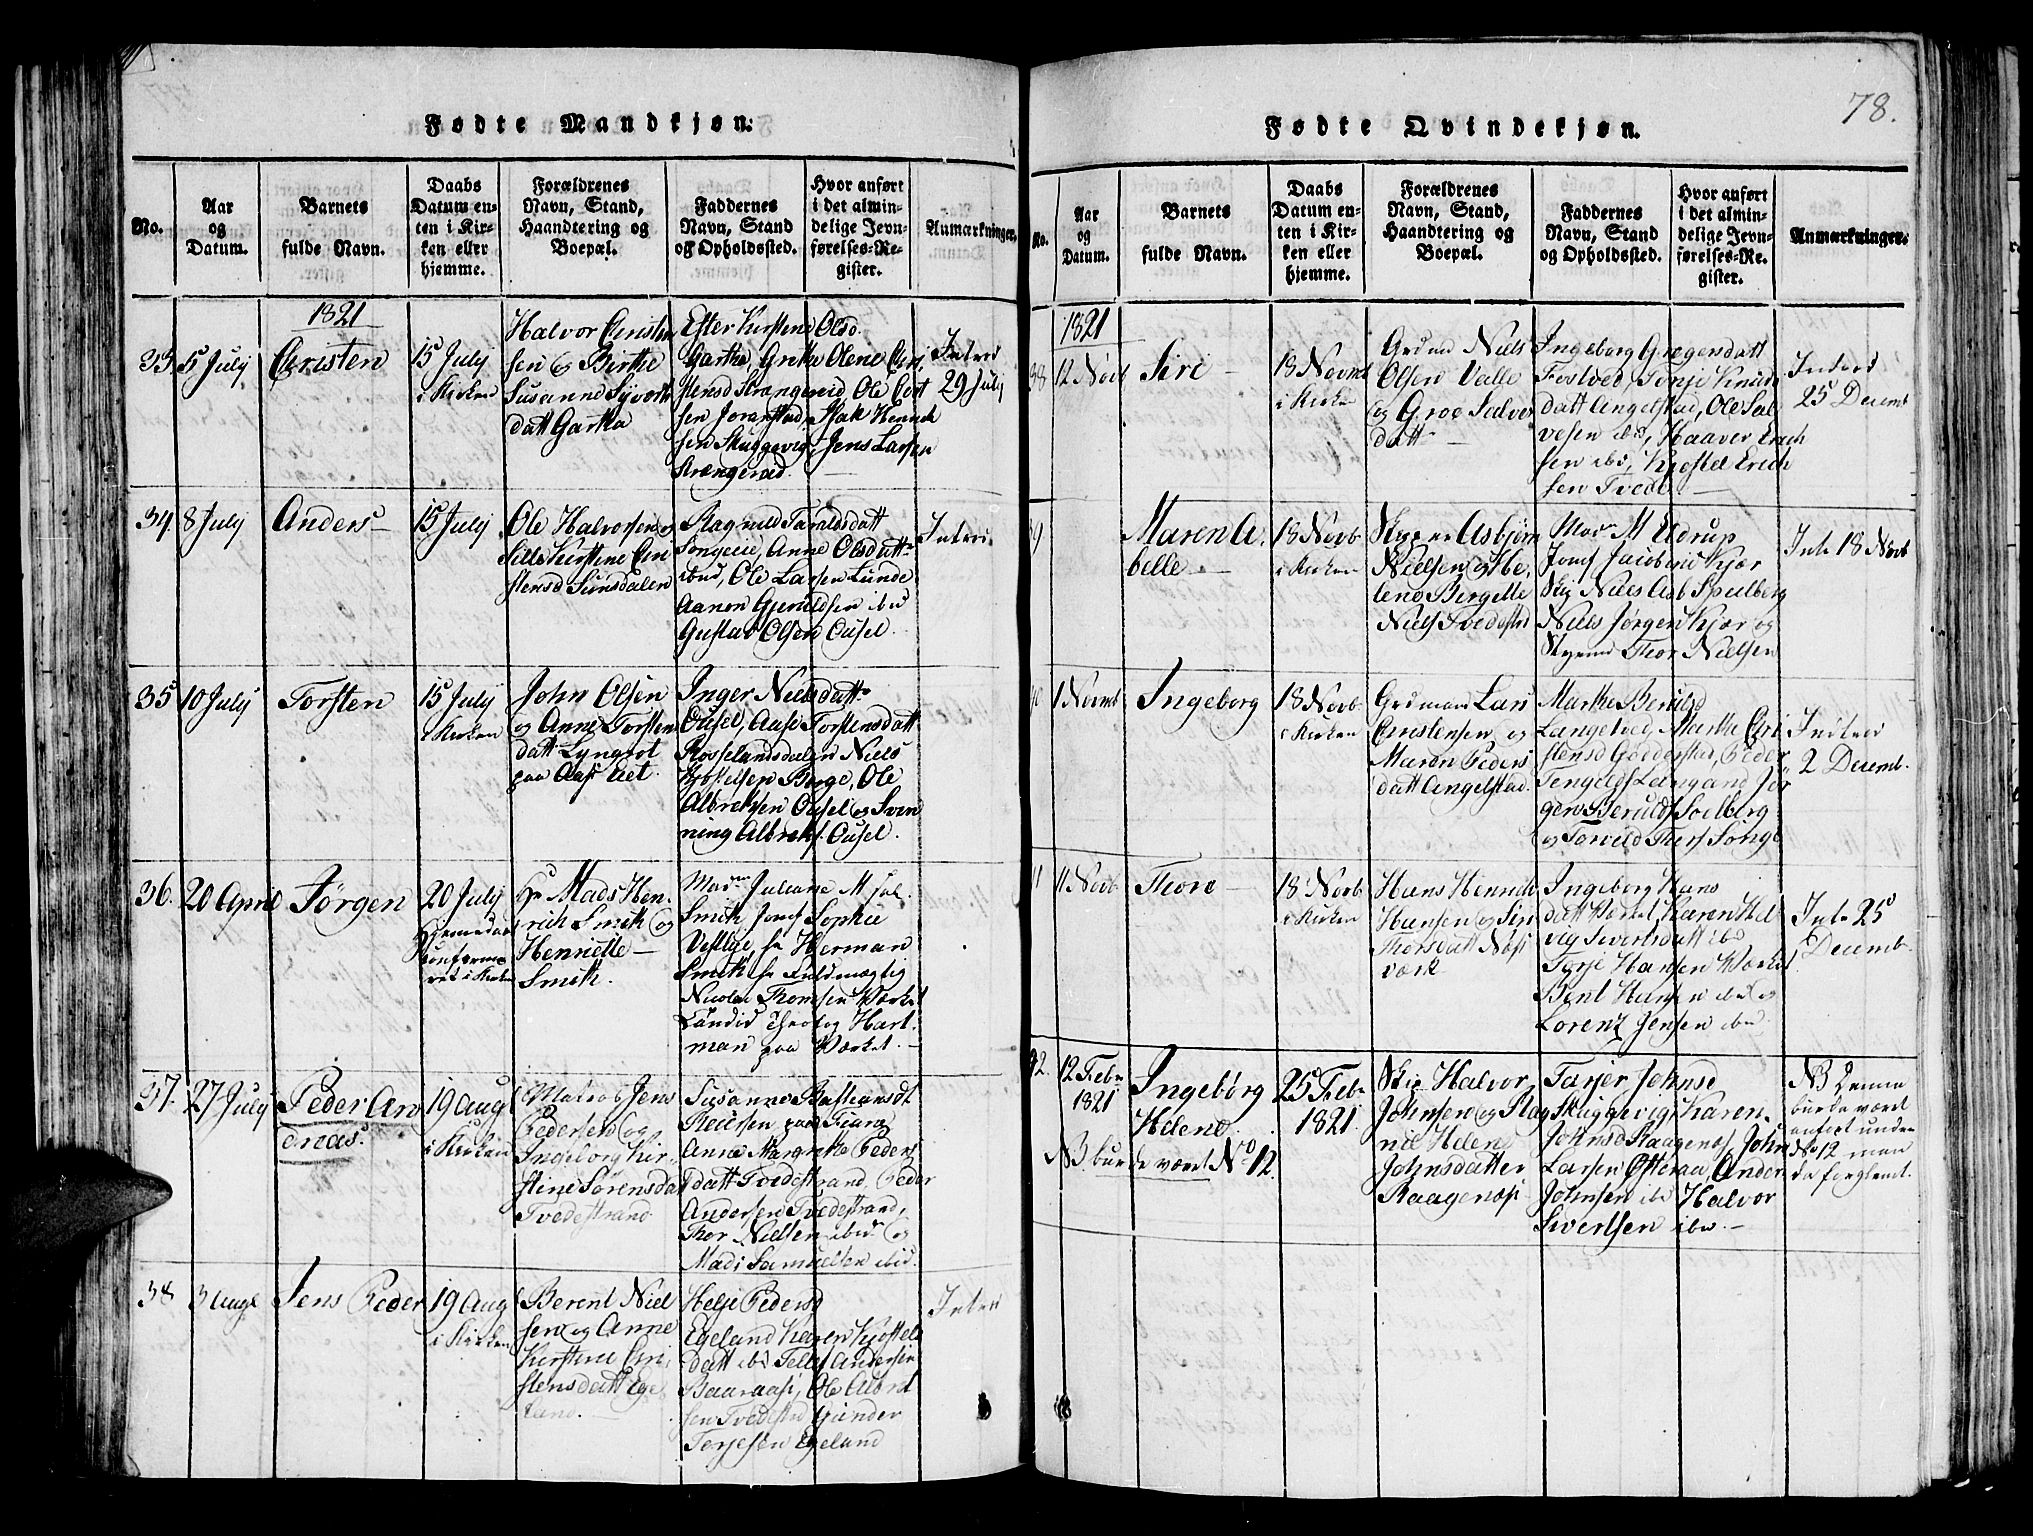 78.
Fødte Mandkjøn.
No.
Aar
og
Datum.
Barnets
fulde Navn.
Daabs
Datum en-
ten i Kir-
ken eller
hjemme.
Forældrenes
Navn, Stand,
Haandtering og
Boepæl.
Faddernes
Navn, Stand
og Opholdssted.
Hvor anført
i det almin-
delige Jevn-
førelses-Re-
gister.
Anmærkninger.
1821
33.
5 July
Christen
15 July
i Kirken
Halvor Christen
sen og Birthe
Susanne Syverts
datt Gartha
Ester Kirstine Olsd.
Gartha, Grethe Olene Chri,
stensd Strængereid, Ole Cort
sen Joranstad, Isak Henrich
sen Skuggevig, Jens Larsen
Strængereid.
Introd
29 July
34.
8 July
Anders
15 July
Ole Halvorsen og
Sille Kirstine Chri
stensd Sunsdalen
Ragnild Taraldsdatt
Songeeie, Anne Olsdatt
ibid, Ole Larsen Lunde
Aanon Gjeruldsen ibid
Gustav Olsen Ousel.
Introd.
35
10 July
Torsten
15 July
i Kirken
John Olsen
og Anne Torstens
datt Lyngrot
paa Aas Eiet.
Inger Nielsdatt
Ousel, Aase Torstensdatt
Rosselandsdalen Niels
Kjøstelsen Berge, Ole
Albretsen Ousel og Sven
ning Albrets. Ousel.
36.
20 April
Jørgen
20 July
Hjemedøbt
confirme
ret i Kirken
Hr Mads Hen,
rich Smith og
Henriette
Smith.
Madm Juliane M
Smith Jomf Sophie
Vestlye, Hr Herman
Smith, Hr Fuldmægtig
Nicolai Thomsen Værket
Candid Theolog Hart,
man paa Værket.
37.
27 July
Peder An
dreas.
19 Aug
i Kirken
Matros Jens
Pedersen og
Ingeborg Kir,
stine Sørensdat
Tvedestrand
Susanne Bastiansdt
Reiersen paa Fiane
Anne Margrethe Peders
datt Tvedestrand, Peder
Andersen Tvedestrand,
Thor Nielsen ibid og
Mads Samuelsen ibid.
38
3 Aug
Jens Peder
19 Aug
i Kirken
Berent Niel
sen og Anne
Kirstine Chri,
stensdatt Ege
land.
Helje Pedersd
Egeland Karen Kjøstels
datt ibd Tellef Andersen
Baaraas, Ole Albret
sen Tvedestrd Gunder
Terjesen Egeland
Introd
Fødte Qvindekjøn.
No.
Aar
og
Datum.
Barnets
fulde Navn.
Daabs
Datum en-
ten i Kir-
ken eller
hjemme.
Forældrenes
Navn, Stand,
Haandtering og
Boepæl.
Faddernes
Navn, Stand
og Opholdssted.
Hvor anført
i det almin-
delige Jevn-
førelses-Re-
gister.
Anmærkninger.
1821
38
12 Novb
Siri
18 Novmb
i Kirken
Grdmd Niels
Olsen Valle
og Groe Salves
datt
Ingeborg Gregersdatt
Fostved, Tonje Knuds
datt Angelstad, Ole Sal
vesen ibd, Haaver Erich
sen ibd, Kjøstel Erich
sen Tvede
Introd
25 Decemb
39
Maren A,
belle
18 Novb
i Kirken
Skipper Asbjørn
Nielsen og He,
lene Bergette
Niels Tvedestrd
Madm M Udrup
Jomf Jacobine Kjær
Skp Niels Aab Spilberg
Niels Jørgen Kjær og
Thor Nielsen
Int. 18 Novb
40
1 Novmb
Ingeborg
18 Novb
i Kirken
Grdmand Lars
Christensen og
Maren Peders
datt Angelstad.
Marthe Berulsd
Langeland, Marthe Chri
stensd Goderstad, Peder
Tengelsf Langand Jør
gen Beruldsf Soelberg
og Torvild Thorsf Songe
Introd
2 Decemb.
11 Novb
Thore
18 Novb
i Kirken
Hans Henrich
Hansen og Siri
Thorsdatt Næs
værk
Ingeborg Hans
datt Værket Karen Hel
vig Sivertsdatt ibd
Terje Hansen Værket
Bent Hansen ibd og
Lorenz Jensen ibid.
Int. 25
Decemb.
42.
12 Febr
1821
Ingebørg
Helene.
NB burde været No 12.
25 Febr
1821.
Skip Halvor
Johnsen og Rag
nil Helene
Johnsdatter
Raagenæs
Tarjer Johnsd
Skuggevig, Karen
Johnsd Raagenæs, John
Larsen Osteraa Ander
Johnsen ibd Halvor
Sivertsen ibd.
NB Denne
burde været
anført under
No 12 man
da forglemt.